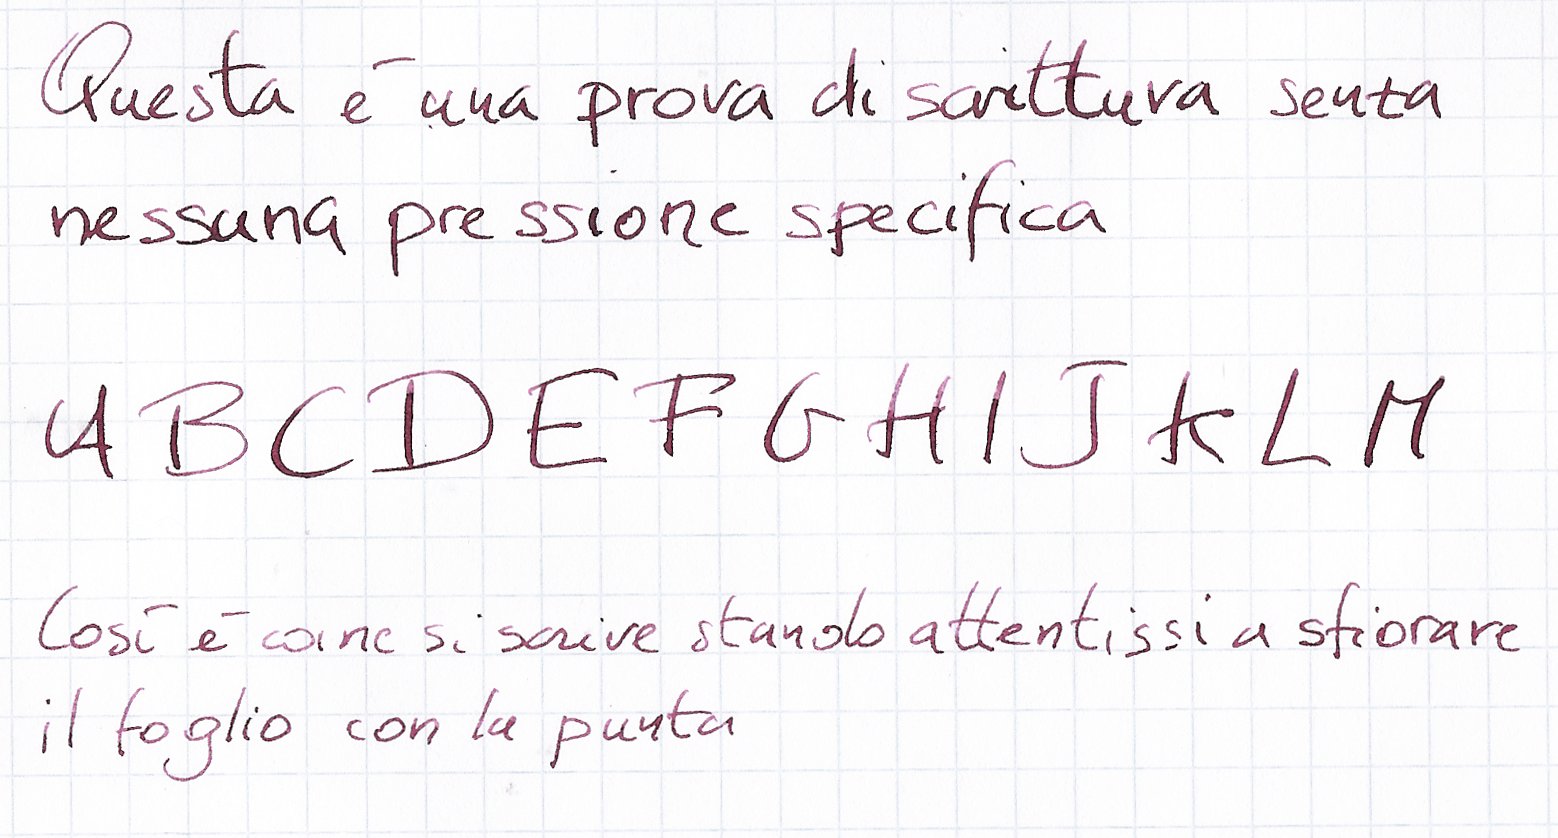 Questa è una prova di scrittura senza
nessuna pressione specifica
A B C D E F G H I J K L M
Così è come si scrive stando attentissi a sfiorare
il foglio con la punta